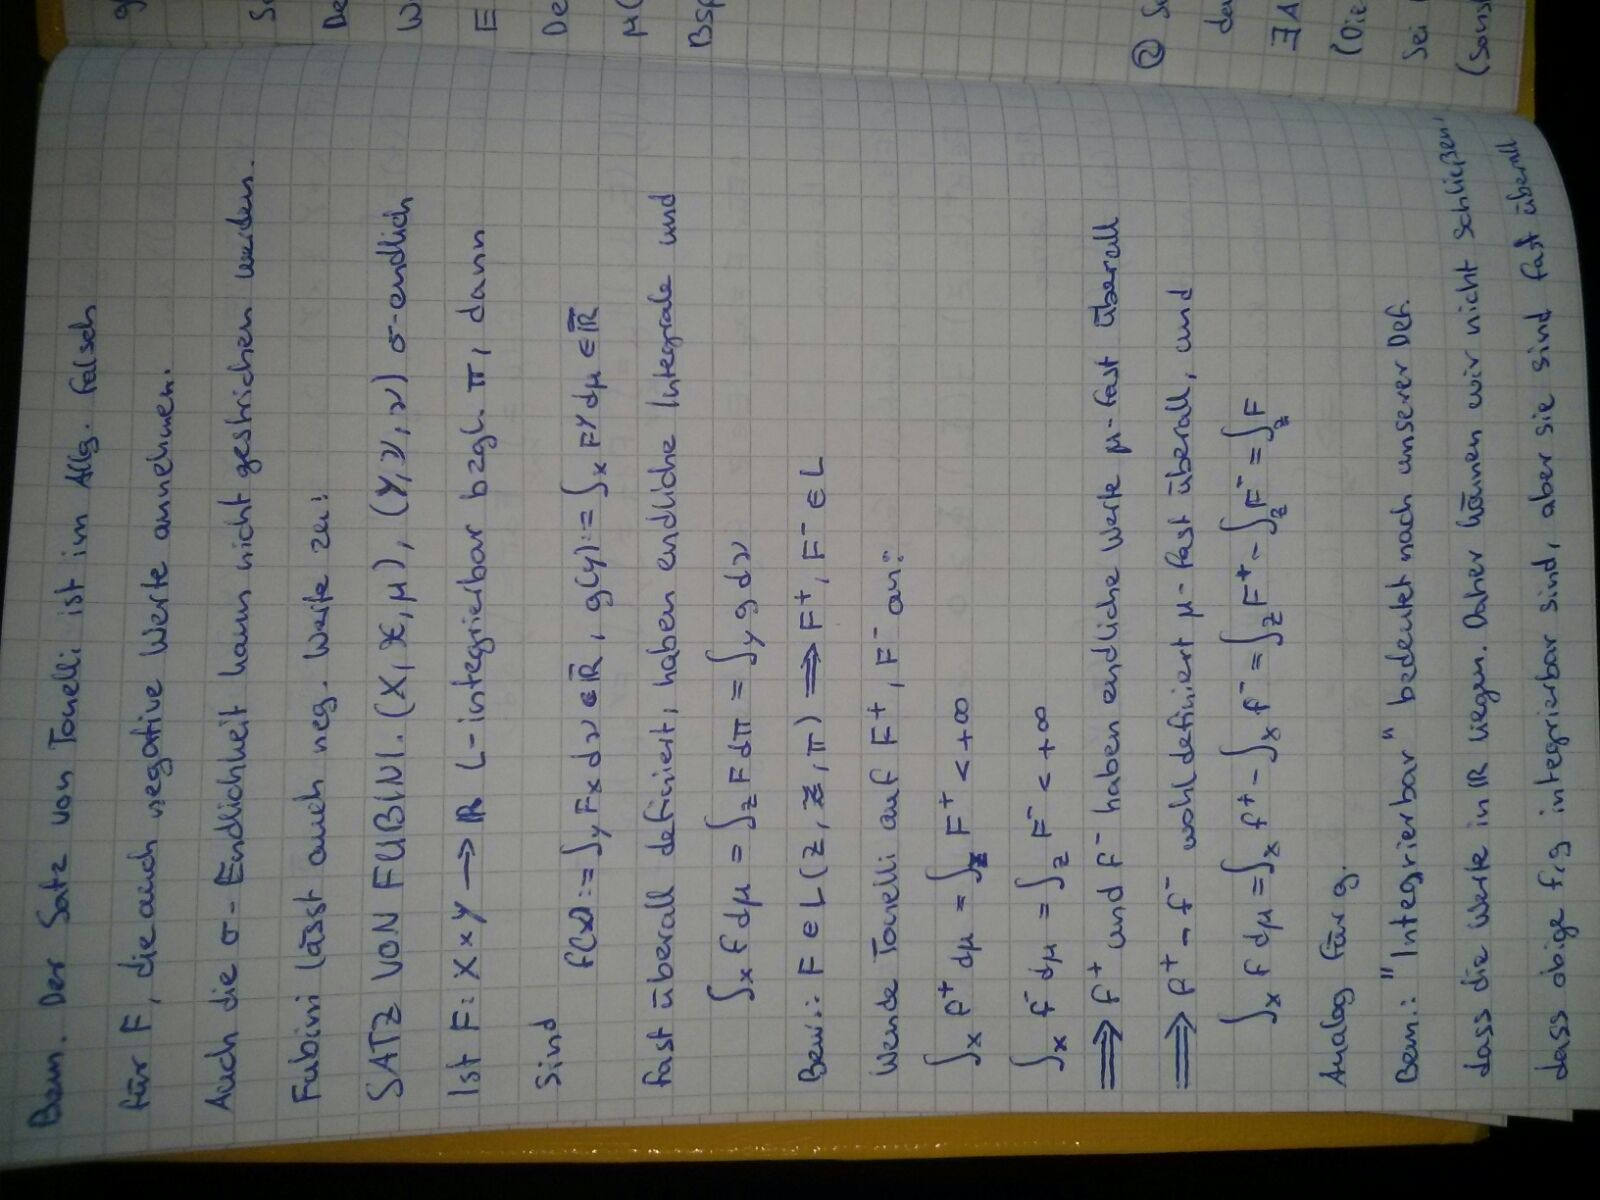 Bem. Der Satz von Tonelli ist im Allg. falsch
für F, die auch negative Werte annehmen.
Auch die σ-Endlichkeit kann nicht gestrichen werden.
Fubini lässt auch neg. Werte zu:
SATZ VON FUBINI. (X, 𝒳, μ), (Y, 𝒴, ν) σ-endlich
Ist F: X×Y → ℝ L-integrierbar bzgl. π, dann
sind
f(x) := ∫_Y F_x dν ∈ ℝ̄, g(y) := ∫_X F^y dμ ∈ ℝ̄
fast überall definiert, haben endliche Integrale und
∫_X f dμ = ∫_Z F dπ = ∫_Y g dν
Bew.: F ∈ L(Z, 𝒵, π) ⟹ F⁺, F⁻ ∈ L
Wende Tonelli auf F⁺, F⁻ an:
∫_X f⁺ dμ = ∫_Z F⁺ < +∞
∫_X f⁻ dμ = ∫_Z F⁻ < +∞
⟹ f⁺ und f⁻ haben endliche Werte μ-fast überall
⟹ f⁺ - f⁻ wohldefiniert μ-fast überall, und
∫_X f dμ = ∫_X f⁺ - ∫_X f⁻ = ∫_Z F⁺ - ∫_Z F⁻ = ∫_Z F
Analog für g.
Bem.: "Integrierbar" bedeutet nach unserer Def.
dass die Werte in ℝ liegen. Daher können wir nicht schließen,
dass obige f, g integrierbar sind, aber sie sind fast überall
② S
da
∃A
(Die
Sei
(Sonst
S
De
W
E
De
μ(
Bsp